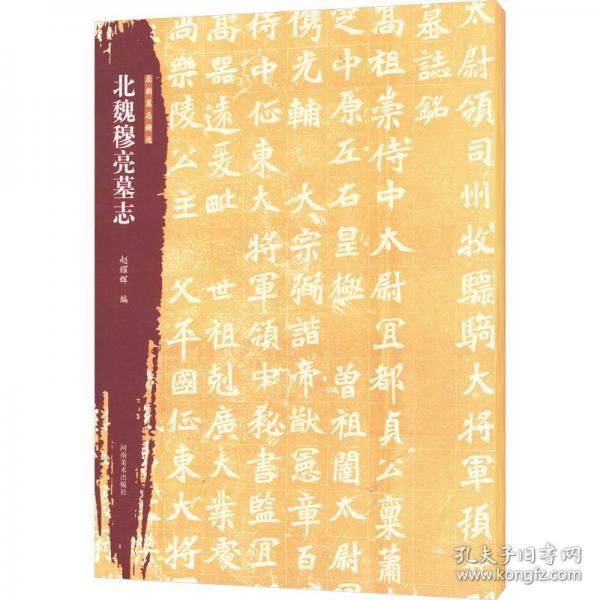 北朝墓志精选
北魏穆亮墓志
赵耀辉 编
河南美术出版社
太尉领司州牧骠騎大将軍頊
墓誌銘
高祖崇侍中太尉冝都貞公稟蕭
芝中原左右皇極 曽祖闥太尉
儁光輔 太宗弼諧帝猷憲章百
侍中征東大将軍領中秘書監冝
髙器遠爰毗 世祖剋廣大業處
尚樂陵公主 父平國征東大将
孔夫子旧书网
www.kongfz.com